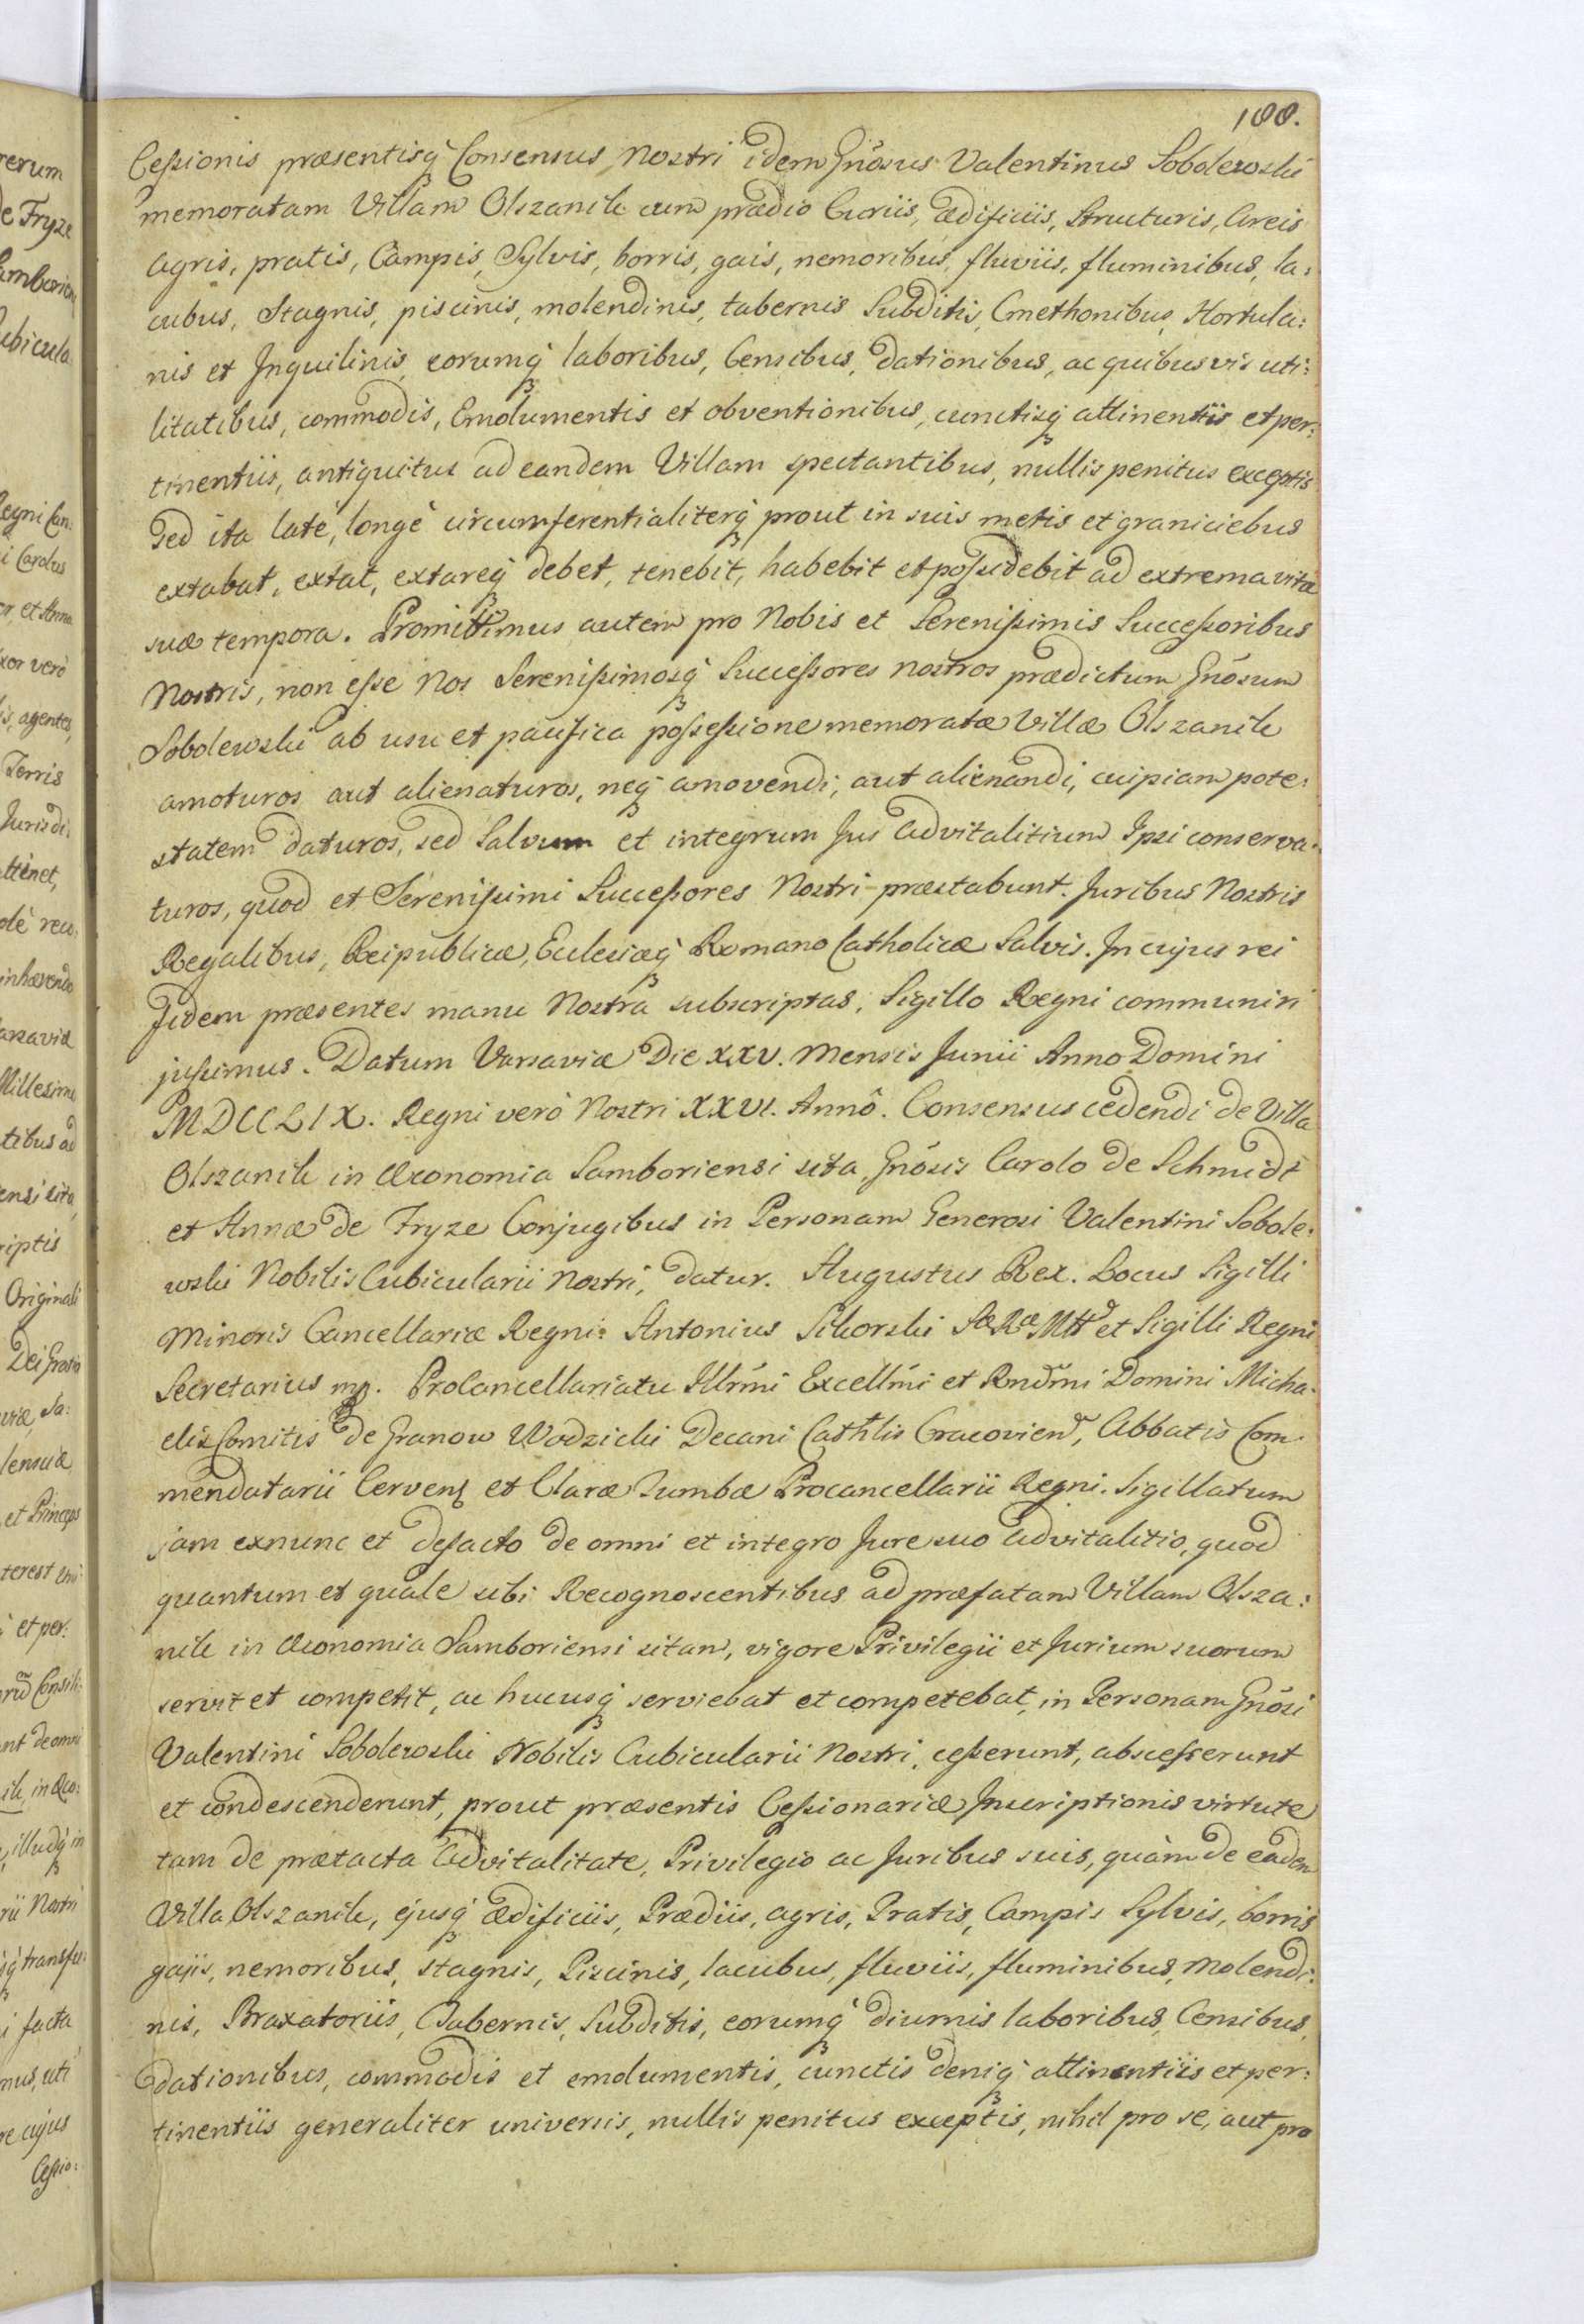 100.
Cessionis præsentisq Consensus Nostri idem Gnosus Valentinus Sobolewski
memoratam Villam Olszanik cum prædio Curiis, ædificiis, Structuris, Areis
Agris, pratis, Campis, Sylvis, borris, gais, nemoribus, fluviis, fluminibus, la:
cubus, Stagnis, piscinis, molendinis, tabernis Subditis, Cmethonibus, Hortula:
nis et Inquilinis, eorumq laboribus, Censibus, dationibus, ac quibusvis uti:
litatibus, commodis, Emolumentis et obventionibus, cunctisq attinentiis et per:
tinentiis, antiquitus ad eandem Villam spectantibus, nullis penitus exceptis
sed ita latè, longè circumferentialiterq prout in suis metis et graniciebus
extabat, extat, extareq debet, tenebit, habebit et possidebit ad extrema vitæ
suæ tempora. Promittimus autem pro Nobis et Serenissimis Successoribus
Nostris, non esse Nos Serenissimosq Successores nostros prædictum Gnosum
Sobolewski ab usu et pacifica possessione memoratæ Villæ Olszanik
amoturos aut alienaturos, neq amovendi, aut alienandi, cuipiam pote:
statem daturos, sed Salvum et integrum Jus Advitalitium Ipsi conserva:
turos, quod et Serenissimi Successores Nostri præstabunt. Juribus Nostris
Regalibus, Reipublicæ, Eclesiæq Romano Catholicæ Salvis. In cujus rei
fidem præsentes manu Nostra subscriptas, Sigillo Regni communiri
jussimus. Datum Varsaviæ Die XXV. Mensis Junii Anno Domini
MDCCLIX. Regni verò Nostri XXVI. Annô. Consensus cedendi de Villa
Olszanik in Œconomia Samboriensi sita, Gnosis Carolo de Schmidt
et Annæ de Fryze Conjugibus in Personam Generosi Valentini Sobole:
wski Nobilis Cubicularii Nostri, datur. Augustus Rex. Locus Sigilli
Minoris Cancellariæ Regni: Antonius Sikorski Sæ Ræ Mtt et Sigilli Regni
Secretarius mp. Procancellariatu Illrmi Excellmi et Rndmi Domini Micha:
elis Comitis de Granow Wodzicki Decani Cathlis Cracovien, Abbatis Com:
mendatarii Cerven et Claræ Tumbæ Procancellarii Regni. Sigillatum
jam exnunc et defacto de omni et integro Jure suo advitalitio, quod
quantum et quale sibi Recognoscentibus ad præfatam Villam Olsza:
nik in Œconomia Samboriensi sitam, vigore Privilegii et Jurium suorum
servit et competit, ac hucusq serviebat et competebat, in Personam Gnosi
Valentini Sobolewski Nobilis Cubicularii Nostri, cesserunt, abscesserunt
et condescenderunt, prout præsentis Cessionariæ Inscriptionis virtute
tam de prætacta Advitalitate, Privilegio ac Juribus suis, quàm de eadem
Villa Olszanik, ejusq ædificiis, Prædiis, agris, Pratis, Campis Sylvis, borris
gajis, nemoribus, stagnis, Piscinis, lacubus, fluviis, fluminibus, Molendi:
nis, Braxatoriis, Tabernis, Subditis, eorumq diurnis laboribus, Censibus,
dationibus, commodis et emolumentis, cunctis deniq attinentiis et per:
tinentiis generaliter universis, nullis penitus exceptis, nihil pro se, aut pro